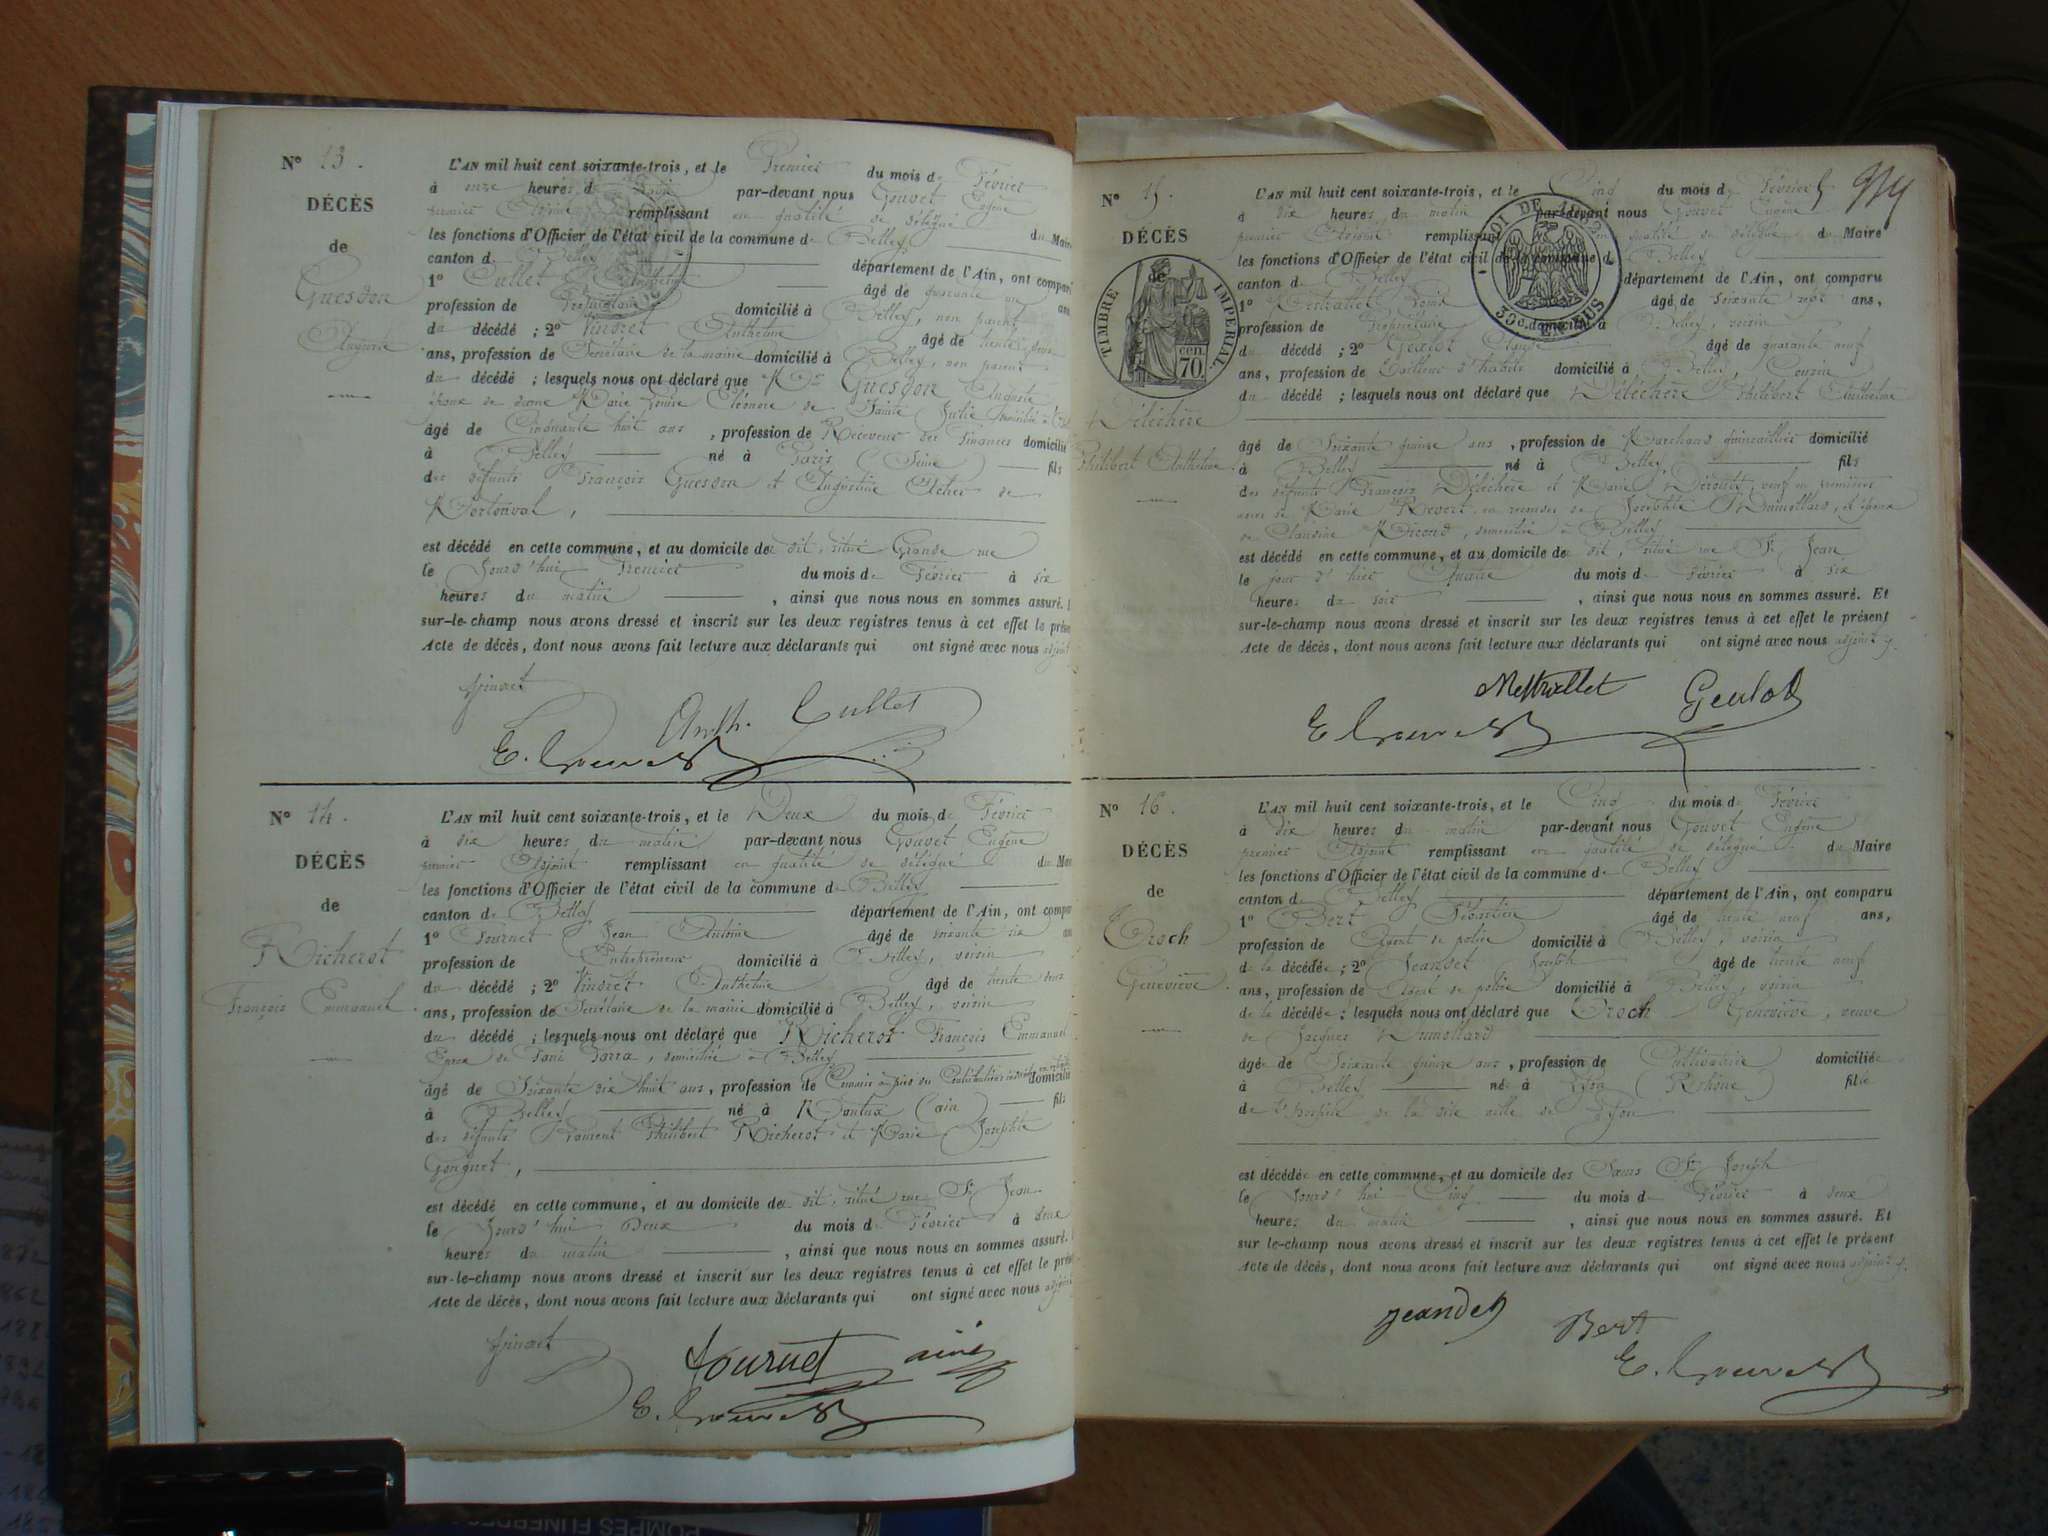 N° 13.
DÉCÈS
de
Guesdon
Auguste
L'AN mil huit cent soixante-trois, et le Premier du mois de Février
à onze heures du par-devant nous Gouvet Eugène
premier Adjoint remplissant en qualité de délégué du Maire
les fonctions d'Officier de l'état civil de la commune de Belley
canton de Belley département de l'Ain, ont comparu
1° Cullet Anthelme âgé de quarante un ans
profession de domicilié à Belley, non parent
du décédé ; 2° Vindret Anthelme âgé de trente deux
ans, profession de Secrétaire de la mairie domicilié à Belley, non parent
du décédé ; lesquels nous ont déclaré que Mr Guesdon Auguste
époux de dame Marie Louise Eléonore de Sainte Julie
âgé de Cinquante huit ans, profession de Receveur des Finances domicilié
à Belley né à Paris (Seine) fils
des défunts François Guesdon et Augustine de
Mortonval,
est décédé en cette commune, et au domicile de dit, situé Grande rue
le Jourd'hui Premier du mois de Février à six
heures du matin , ainsi que nous nous en sommes assuré.
sur-le-champ nous avons dressé et inscrit sur les deux registres tenus à cet effet le prése
Acte de décès, dont nous avons fait lecture aux déclarants qui ont signé avec nous adjoint
Anth. Cullet
E. Gouvet
N° 14.
DÉCÈS
de
Richerot
François Emmanuel
L'AN mil huit cent soixante-trois, et le Deux du mois de Février
à dix heures du matin par-devant nous Gouvet Eugène
premier Adjoint remplissant en qualité de délégué du
les fonctions d'Officier de l'état civil de la commune de Belley
canton de Belley département de l'Ain, ont compar
1° Tournet Jean Antoine âgé de soixante six
profession de Entrepreneur domicilié à Belley, voisin
du décédé ; 2° Vindret Anthelme âgé de trente deux
ans, profession de Secrétaire de la mairie domicilié à Belley, voisin
du décédé ; lesquels nous ont déclaré que Richerot François Emmanuel
Epoux de Parra, domicilié à Belley
âgé de Soixante dix huit ans, profession de domicilié
à Belley né à (ain) fils
des défunts Laurent Philibert Richerot et Marie Josephte
Gonguet,
est décédé en cette commune, et au domicile de dit, situé rue St Jean
le Jourd'hui Deux du mois de Février à deux
heures du matin , ainsi que nous nous en sommes assuré.
sur-le-champ nous avons dressé et inscrit sur les deux registres tenus à cet effet le prése
Acte de décès, dont nous avons fait lecture aux déclarants qui ont signé avec nous adjoint
tournet ainé
E. Gouvet
N° 15.
DÉCÈS
de
TIMBRE IMPERIAL
cen. 70.
Déléchère
Philibert Anthelme
LOI DE 1862
30 c. EN SUS
L'AN mil huit cent soixante-trois, et le Cinq du mois de Février
à dix heures du matin par-devant nous Gouvet Eugène
premier Adjoint remplissant en qualité de délégué du Maire
les fonctions d'Officier de l'état civil de la commune de Belley
canton de Belley département de l'Ain, ont comparu
1° Mestrallet Louis âgé de Soixante ans,
profession de Propriétaire domicilié à Belley, voisin
du décédé ; 2° Gealot âgé de quarante neuf
ans, profession de Tailleur d'habits domicilié à Belley, Cousin
du décédé ; lesquels nous ont déclaré que Déléchère Philibert Anthelme
âgé de Soixante quinze ans, profession de Marchand quincaillier domicilié
à Belley né à Belley, fils
des défunts François Déléchère et Marie Déroulle, veuf en premières
noces de Marie Revert en secondes de Josephte Dumollard, et époux
de Claudine Micoud, domicilié à Belley
est décédé en cette commune, et au domicile de dit, situé rue St Jean
le jour d'hier Quatre du mois de Février à six
heures du soir , ainsi que nous nous en sommes assuré. Et
sur-le-champ nous avons dressé et inscrit sur les deux registres tenus à cet effet le présent
Acte de décès, dont nous avons fait lecture aux déclarants qui ont signé avec nous adjoint
Mestrallet Gealot
E. Gouvet
N° 16.
DÉCÈS
de
Croch
Geneviève
L'AN mil huit cent soixante-trois, et le Cinq du mois de Février
à dix heures du matin par-devant nous Gouvet Eugène
premier Adjoint remplissant en qualité de délégué du Maire
les fonctions d'Officier de l'état civil de la commune de Belley
canton de Belley département de l'Ain, ont comparu
1° Bert Florentin âgé de trente neuf ans,
profession de Agent de police domicilié à Belley, voisin
de la décédée ; 2° Jeandet Joseph âgé de trente neuf
ans, profession de Agent de police domicilié à Belley, voisin
de la décédée ; lesquels nous ont déclaré que Croch Geneviève, veuve
de Jacques Dumollard
âgée de Soixante quinze ans, profession de Cultivatrice domiciliée
à Belley née à Lyon (Rhône) fille
de l'hospice de la dite ville de Lyon
est décédée en cette commune, et au domicile des Sœurs St Joseph
le Jourd'hui Cinq du mois de Février à deux
heures du matin , ainsi que nous nous en sommes assuré. Et
sur le-champ nous avons dressé et inscrit sur les deux registres tenus à cet effet le présent
Acte de décès, dont nous avons fait lecture aux déclarants qui ont signé avec nous adjoint
Jeandet Bert
E. Gouvet
POMPES FUNEBRES